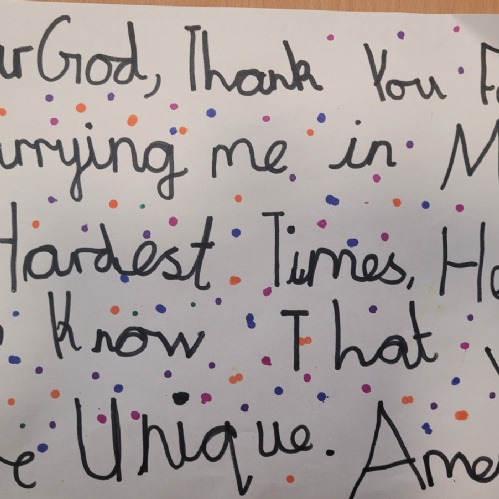 ur God, Thank You F
urrying me in M
Hardest Times, He
Know That
Unique. Ame